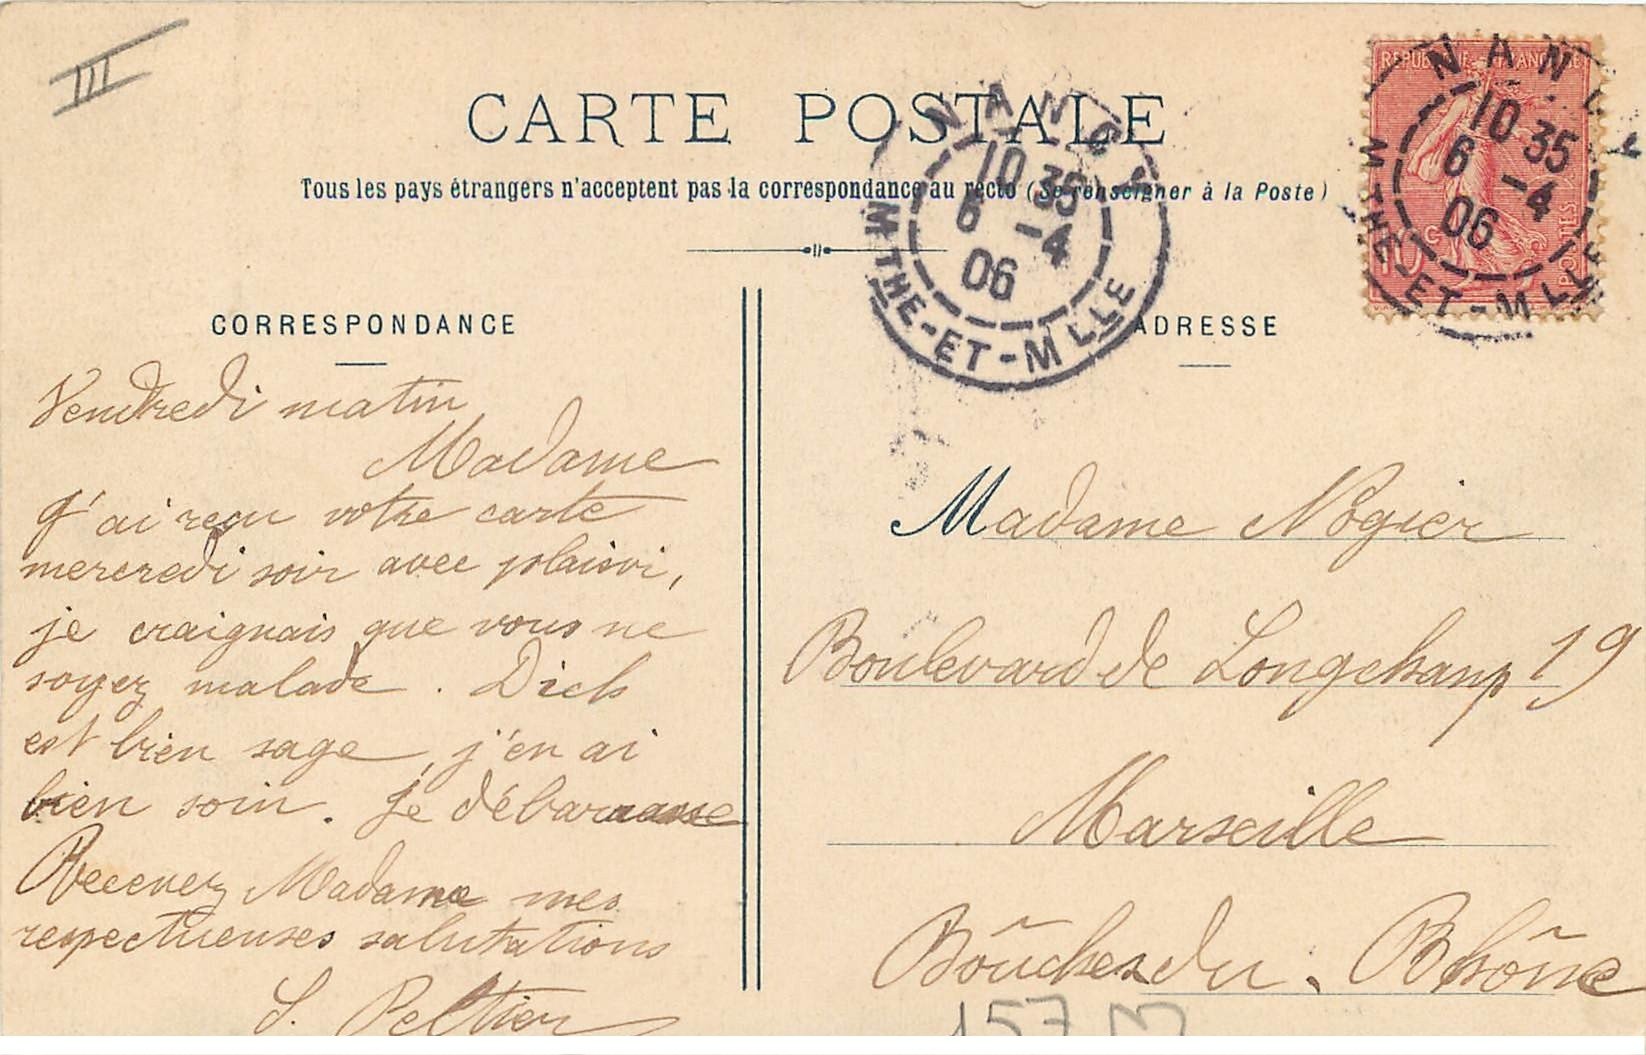 III
CARTE POSTALE
Tous les pays étrangers n'acceptent pas la correspondance au recto (Se renseigner à la Poste)
NANCY
10 35
6 -4
06
MTHE-ET-MLLE
REPUBLIQUE FRANÇAISE
10 c
POSTES
NANCY
10 35
6 -4
06
MTHE-ET-MLLE
CORRESPONDANCE
Vendredi matin
Madame
J'ai reçu votre carte
mercredi soir avec plaisir,
je craignais que vous ne
soyez malade. Dick
est bien sage, j'en ai
bien soin. Je débarrasse
Recevez Madame mes
respectueuses salutations
S. Peltier
ADRESSE
Madame Nogier
Boulevard de Longchamp 19
Marseille
Bôuches du Rhône
157